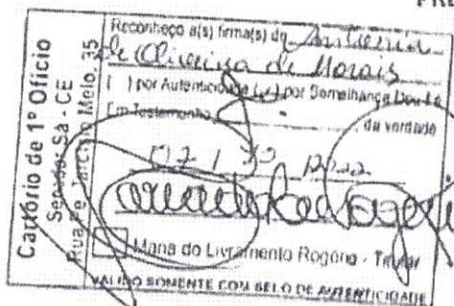 PRE
Cartório de 1º Ofício
Senador Sá - CE
Rua Pe. Tarcísio Melo, 35
Reconheço a(s) firma(s) de Antonia
de Oliveira de Morais
( ) por Autenticidade (x) por Semelhança Dou Fé
Em Testemunho da verdade
Maria do Livramento Rogério - Titular
VALIDO SOMENTE COM SELO DE AUTENTICIDADE